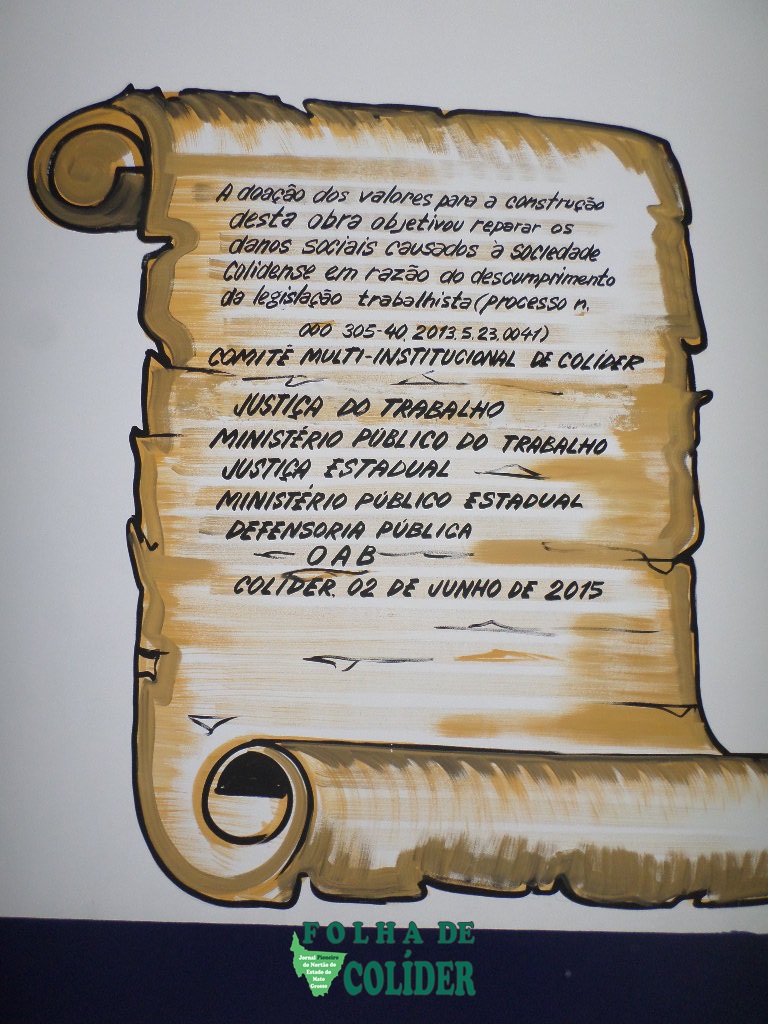 A doação dos valores para a construção
desta obra objetivou reparar os
danos sociais causados à sociedade
Colidense em razão do descumprimento
da legislação trabalhista (processo n.
000 305-40.2013.5.23.0041)
COMITÊ MULTI-INSTITUCIONAL DE COLÍDER
JUSTIÇA DO TRABALHO
MINISTÉRIO PÚBLICO DO TRABALHO
JUSTIÇA ESTADUAL
MINISTÉRIO PÚBLICO ESTADUAL
DEFENSORIA PÚBLICA
OAB
COLÍDER, 02 DE JUNHO DE 2015
FOLHA DE
COLÍDER
Jornal Pioneiro
do Nortão do
Estado de
Mato
Grosso